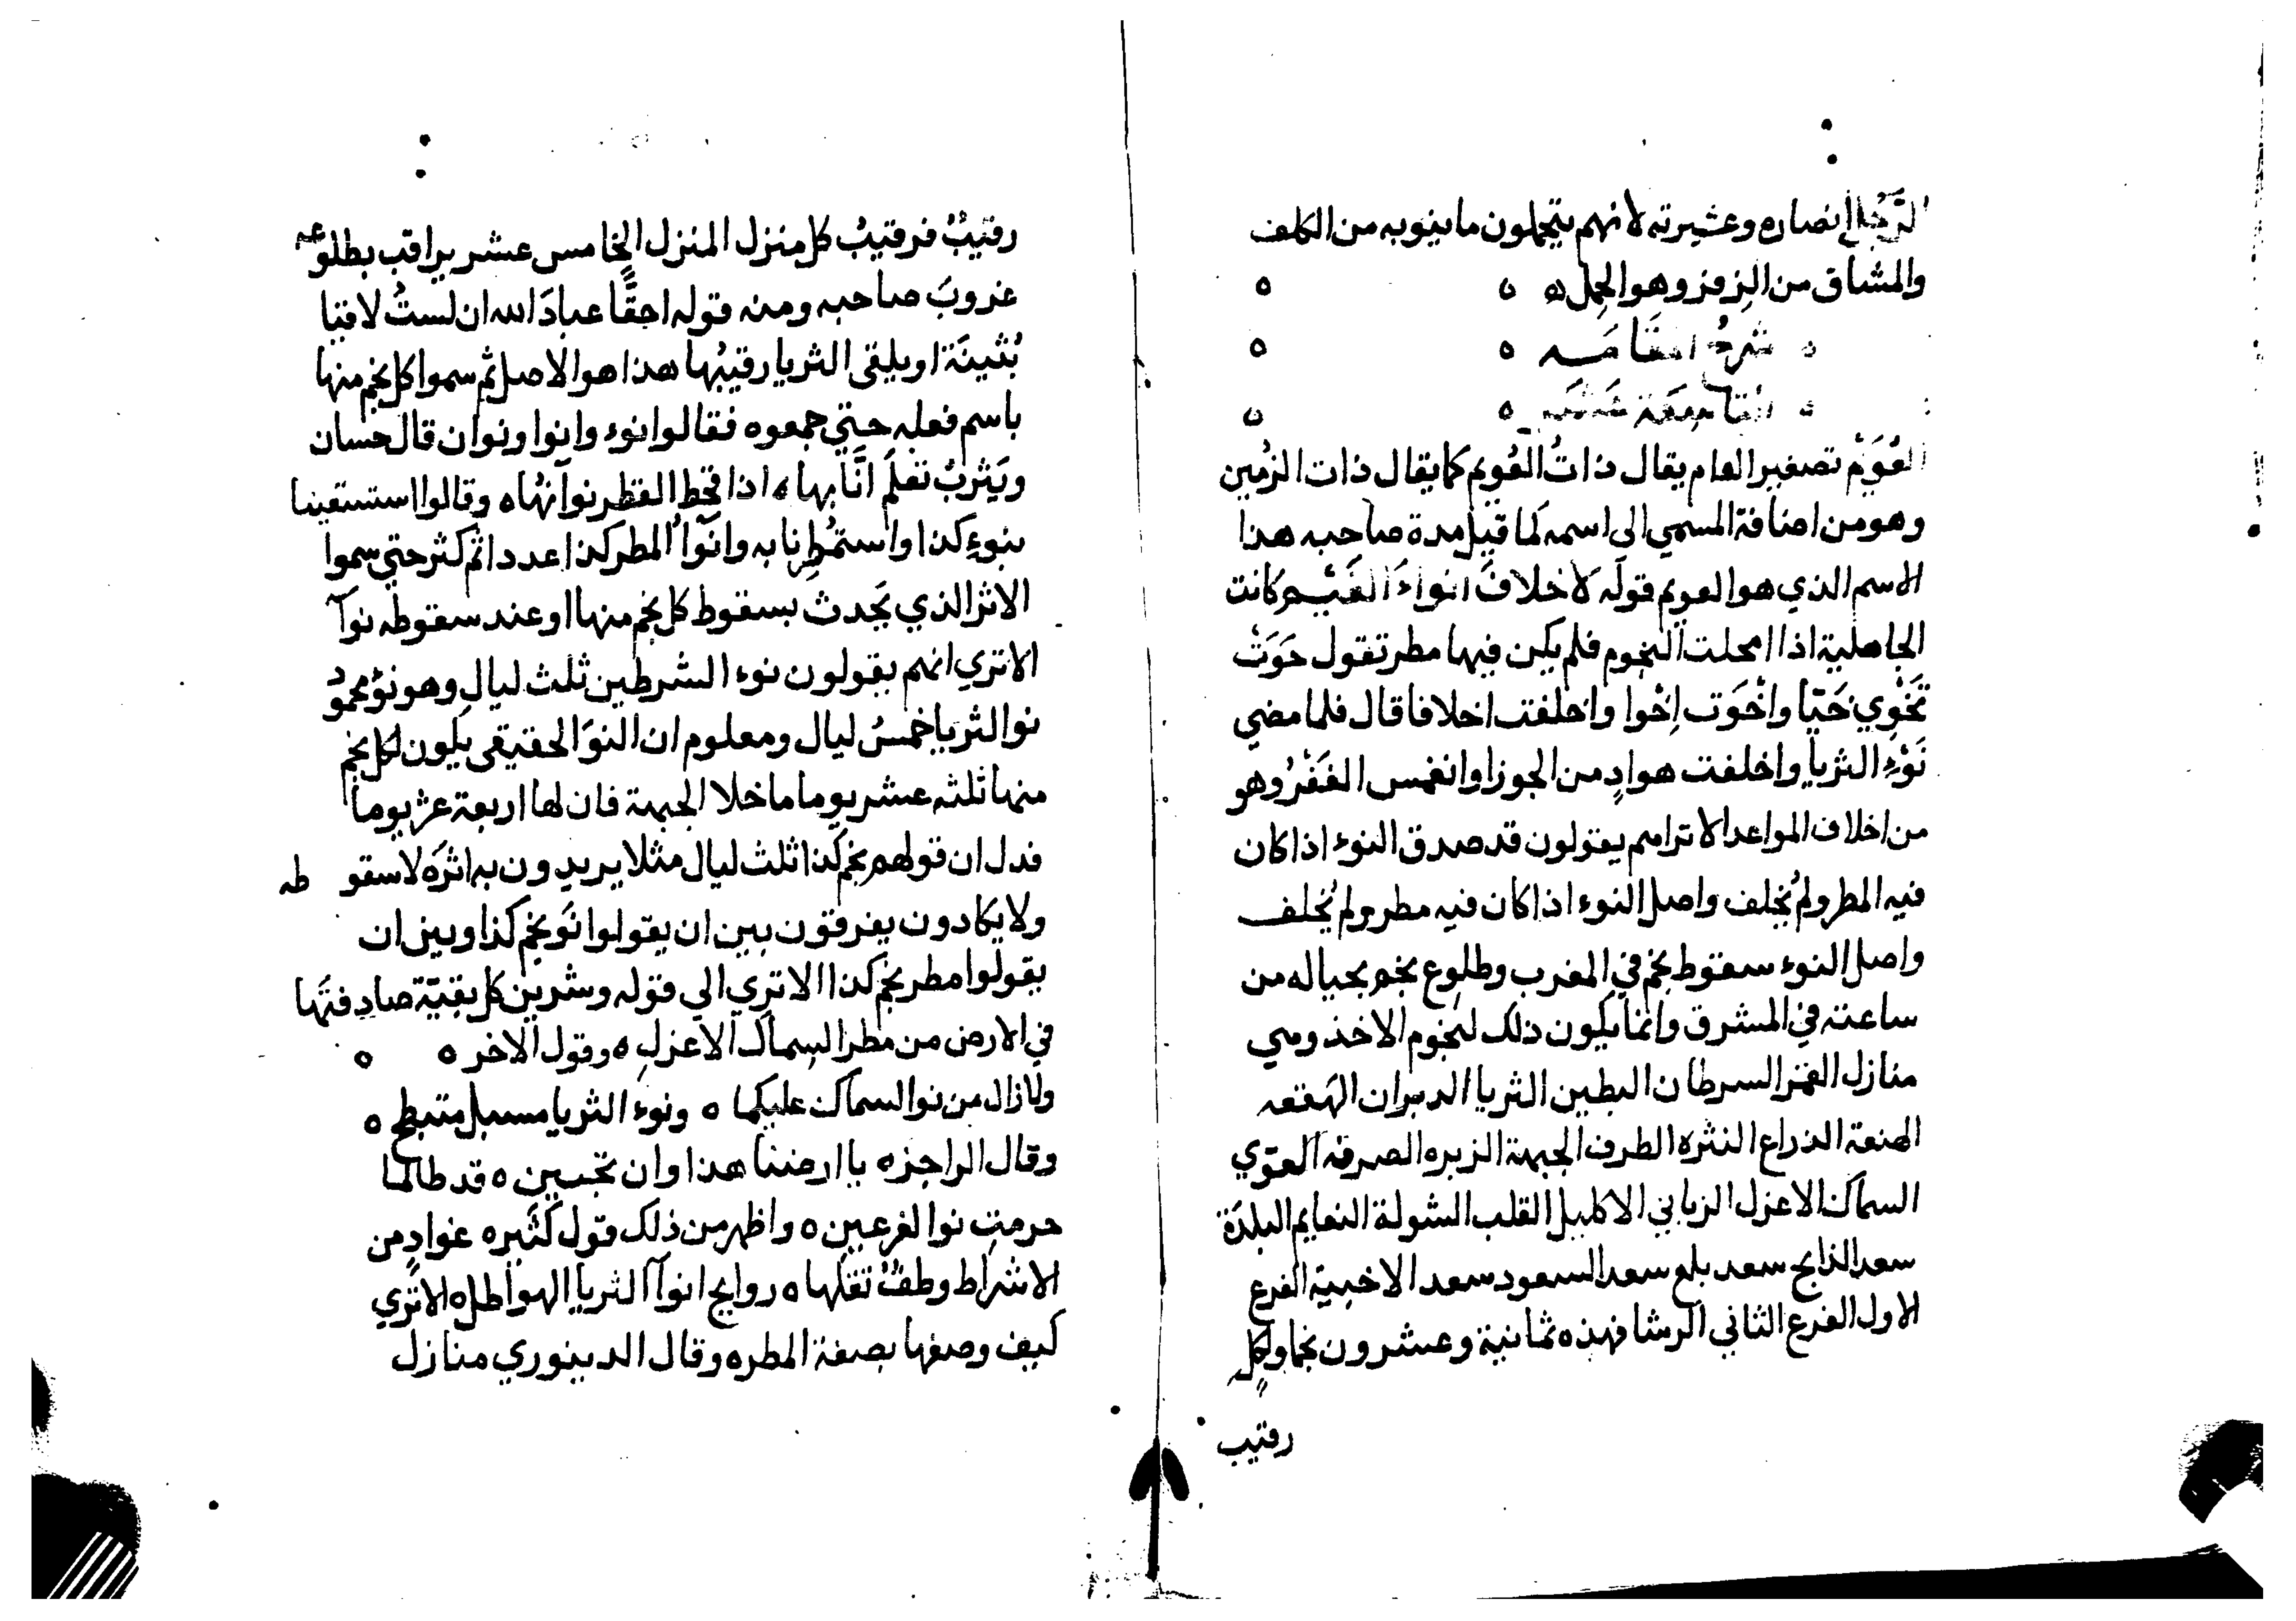 الرَّجُل انصاره وعشيرته لانهم يتحملون ما ينوبه من الكلف
والمشاق من الزفز وهو الحمل ه ه ه
شرح المقامة
التاسعة عشر
العُوَيْم تصغير العام يقال ذاتُ العُويم كما يقال ذات الزُمين
وهو من اضافة المسمي الى اسمه كما قيل مدة صاحبه هذا
الاسم الذي هو العويم قوله لاخلاف انواءَ الغَيْم كانت
الجاهلية اذا امحلت النجوم فلم يكن فيها مطر تقول خَوَتْ
تَخْوِي خَيّا واخْوَت اِخْوا واخلفت اخلافا قال فلما مضي
نَوْء الثريا واخلفت هوادٍ من الجوزا وانغمس الغَفْرُ وهو
من اخلاف المواعد الا تراهم يقولون قد صدق النوء اذا كان
فيه المطر ولم يُخلف واصل النوء اذا كان فيه مطر ولم يُخلف
واصل النوء سقوط نجم في المغرب وطلوع نجم بحياله من
ساعته في المشرق وانما يكون ذلك لنجوم الاخذ وهي
منازل القمر السرطان البطين الثريا الدبران الهَقعه
الهنعة الذراع النثره الطرف الجبهة الزبره الصرفه العوّي
السماك الاعزل الزباني الاكليل القلب الشولة النعايم البلدَة
سعد الذابح سعد بلع سعد السعود سعد الاخبية الفرع
الاول الفرع الثاني الرشا فهذه ثمانية وعشرون نجما ولكلٍ
رقيب
رقيبٌ فرقيبُ كل منزل المنزل الخامس عشر يراقب بطلوعه
غروبَ صاحبه ومنه قوله احقًّا عبادَ الله ان لستُ لاقيا
بُثينَة او يلقى الثريا رقيبُها هذا هو الاصل ثم سموا كل نجم منها
باسم فعله حتي جمعوه فقالوا نوء وانوا ونوان قال حسان
ويَثْربُ تعلم انَّا بها ه اذا قحط القطر نوآنُها ه وقالوا استسقينا
بنوءِ كذا واستمطِرنا به وانوآ المطر كذا عددا ثم كثر حتي سموا
الاثر الذي يَحدث بسقوط كل نجم منها او عند سقوطه نوآ
الا تري انهم يقولون نوء الشرطين ثلث ليالٍ وهو نوْ محمودٌ
نوا الثريا خمسُ ليال ومعلوم ان النوَ الحقيقى يكون لكل نجم
منها ثلثه عشر يوما ما خلا الجبهة فان لها اربعة عشر يوما
فدل ان قولهم نجم كذا ثلث ليال مثلا يريدون به اثرَه لا سقوطه
ولا يكادون يفرقون بين ان يقولوا نَو نجم كذا وبين ان
يقولوا مطر نجم كذا الا تري الي قوله وشربن كل بقيّة صادفنَها
في الارض من مطر السماك الاعزلِ ه وقول الاخر ه ه
ولا زال من نوا السماك عليكما ه ونوء الثريا مسبل متبطح ه
وقال الراجز ه يا ارضنا هذا وان تحيين ه قد طالما
حرمتِ نوا الفرعين ه واظهر من ذلك قول كُثَير ه غوادٍ من
الاشراط وطفٌ تقلها ه روايح انوآ الثريا الهواطل ه الا تري
كيف وصفها بصفة المطر ه وقال الدينوري منازل